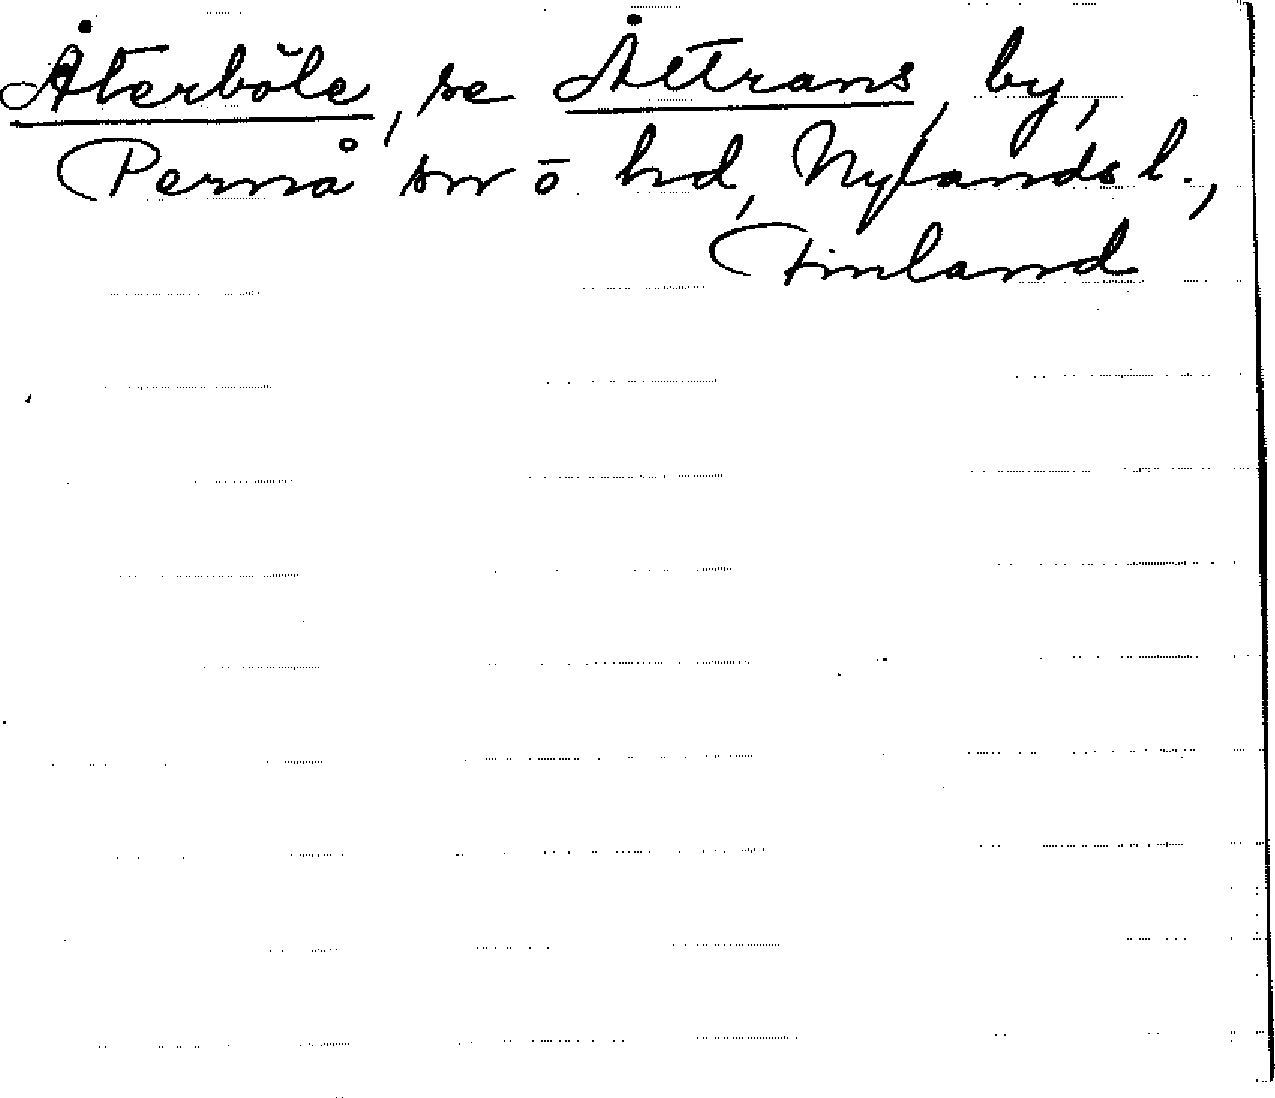 Återböle, se Åltrans, by,
Pernå sn ö hd, Nylands l.,
Finland